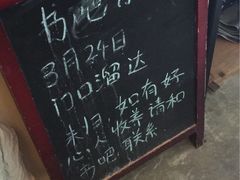 书吧
3月24日
门口溜达
未归 如有好
心人收养请和
书吧联系